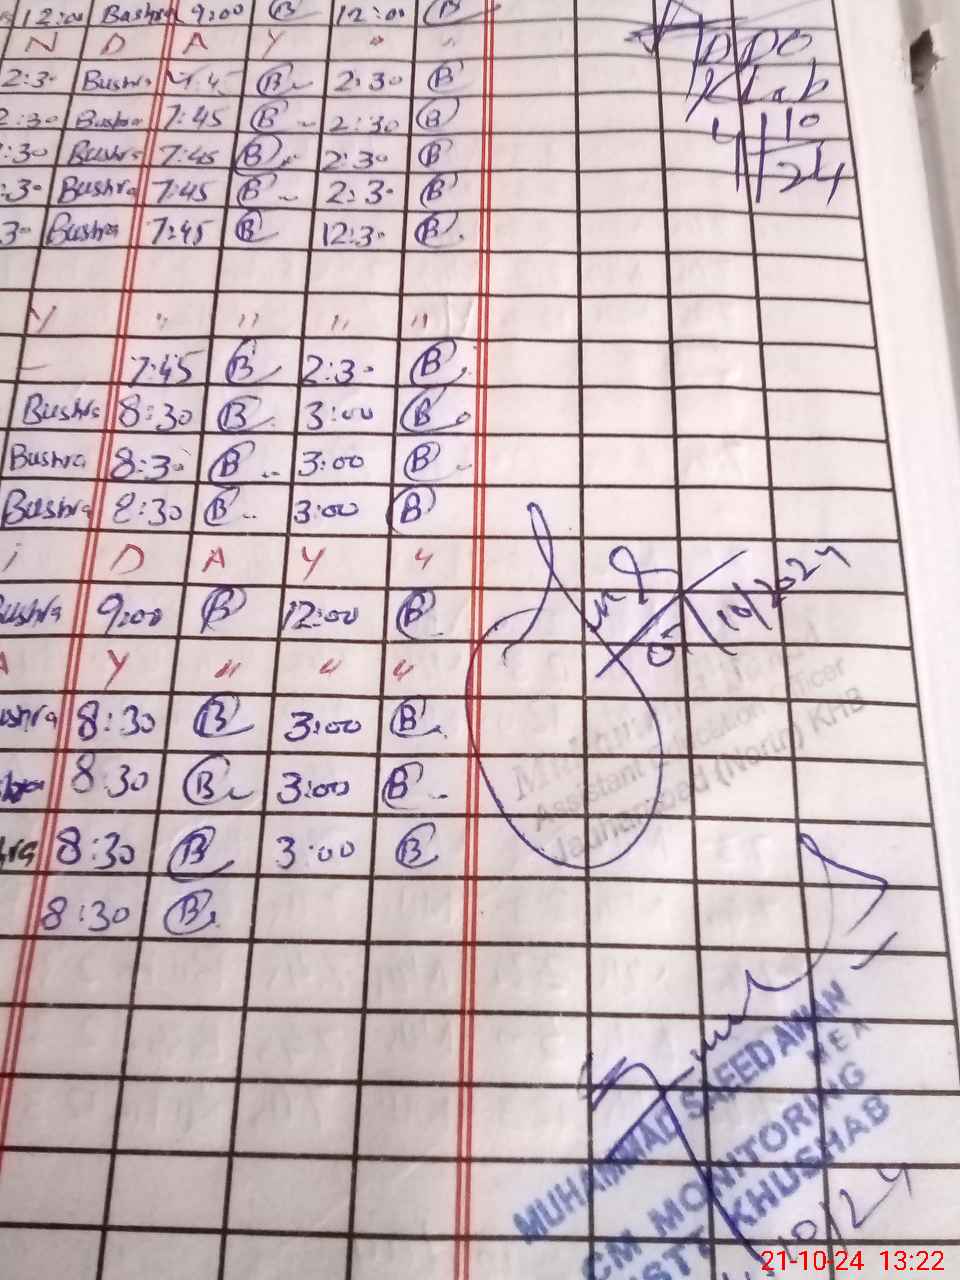 12:00 Bashra 9:00 B 12:00 B
N D A Y " "
2:30 Bushra 7:45 B 2:30 B
2:30 Bushra 7:45 B 2:30 B
:30 Bushra 7:45 B 2:30 B
:30 Bushra 7:45 B 2:30 B
30 Bushra 7:45 B 12:30 B
DDO
Khab
4/10/24
Y " " " "
7:45 B 2:30 B
Bushra 8:30 B 3:00 B
Bushra 8:30 B 3:00 B
Bushra 8:30 B 3:00 B
i D A Y "
ushra 9:00 B 12:00 B
A Y " " "
ushra 8:30 B 3:00 B
8:30 B 3:00 B
hra 8:30 B 3:00 B
8:30 B
10/2024
Assistant Education Officer
Jauharabad (North) KHB
MUHAMMAD SAEED AWAN
MEA
CM MONITORING
DISTT KHUSHAB
10/24
21-10-24 13:22